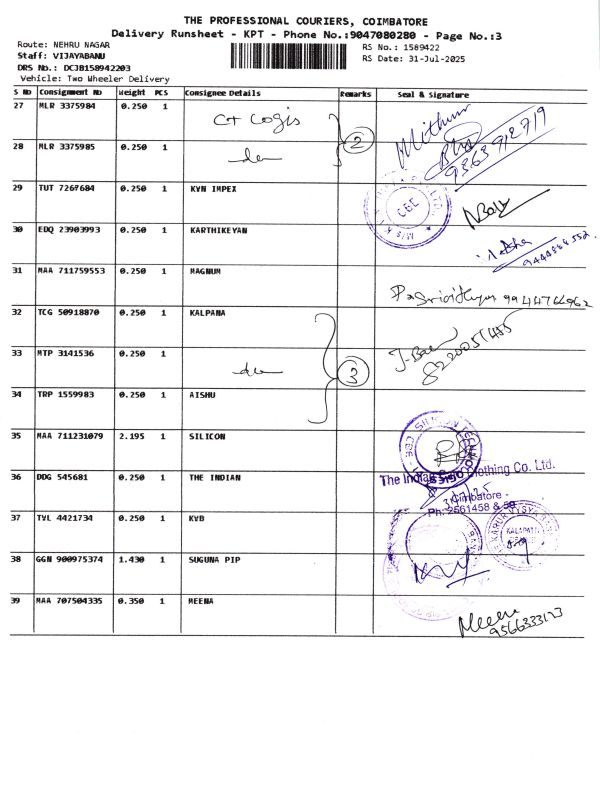 THE PROFESSIONAL COURIERS, COIMBATORE
Delivery Runsheet - KPT - Phone No.:9047080280 - Page No.:3
Route: NEHRU NAGAR
RS No.: 1589422
Staff: VIJAYABANU
RS Date: 31-Jul-2025
DRS No.: DCJB158942203
Vehicle: Two Wheeler Delivery
S No Consignment No Weight PCS Consignee Details Remarks Seal & Signature
27 MLR 3375984 0.250 1
28 MLR 3375985 0.250 1 2
29 TUT 7267684 0.250 1 KVN IMPEX CBE
30 EDQ 23903993 0.250 1 KARTHIKEYAN
31 MAA 711759553 0.250 1 MAGNUM
32 TCG 50918870 0.250 1 KALPANA
33 MTP 3141536 0.250 1 3
34 TRP 1559983 0.250 1 AISHU
35 MAA 711231079 2.195 1 SILICON
36 DDG 545681 0.250 1 THE INDIAN
The Indian Clothing Co. Ltd.
Coimbatore
37 TVL 4421734 0.250 1 KVB
38 GGN 900975374 1.430 1 SUGUNA PIP
39 MAA 707504335 0.350 1 MEENA Meena
9566333123